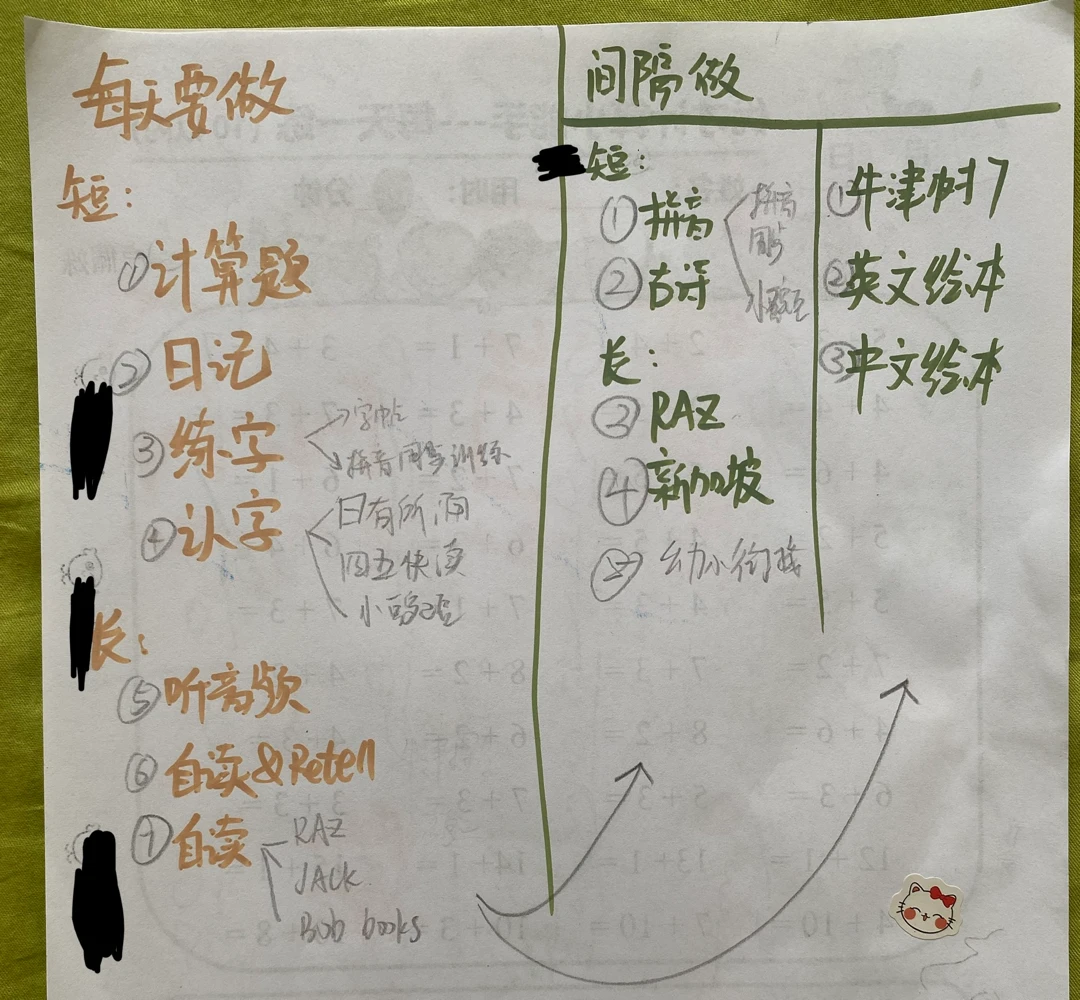 每天要做
短:
①计算题
②日记
③练字
字帖
拼音同步训练
④认字
日有所诵
四五快读
长:
⑤听音频
⑥自读&Retell
⑦自读
RAZ
JACK
Bob books
间隔做
短:
①拼音
拼音
②古诗
长:
③RAZ
④新加坡
⑤幼小衔接
①牛津树7
②英文绘本
③中文绘本